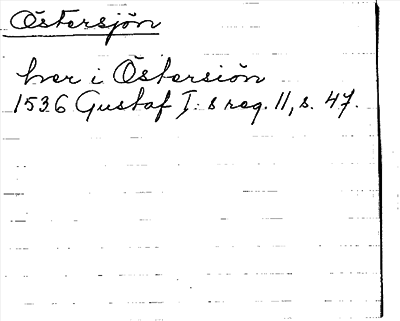 Östersjön
hver i Östersiön
1536 Gustaf I:s reg. 11, s. 47.